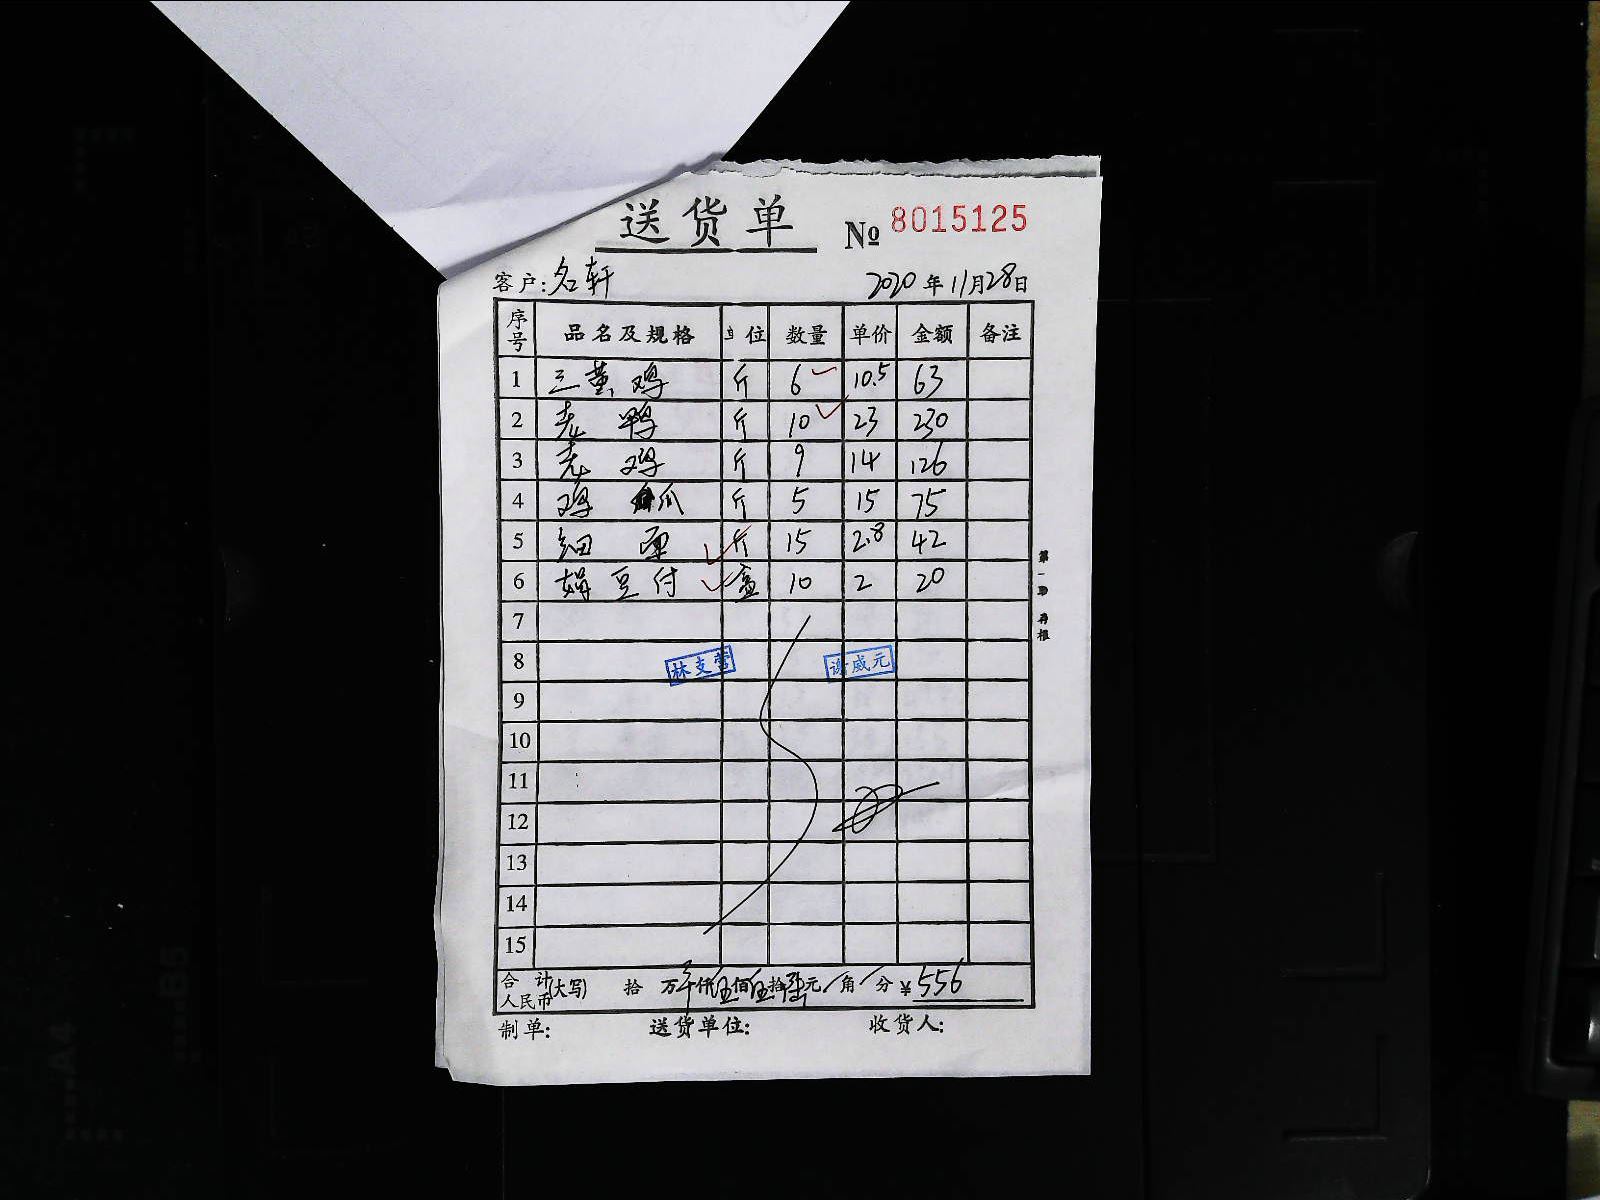 送货单 № 8015125
客户: 名轩 2020年11月28日
序号 品名及规格 单位 数量 单价 金额 备注
1 三黄鸡 斤 6 10.5 63
2 老鸭 斤 10 23 230
3 老鸡 斤 9 14 126
4 鸡爪 斤 5 15 75
5 细面 斤 15 2.8 42
6 娟豆付 盒 10 2 20
7
8 林支营 谢威元
9
10
11
12
13
14
15
合计人民币(大写) 拾 万 仟伍佰伍拾陆元 角 分 ¥556
制单: 送货单位: 收货人:
第一联